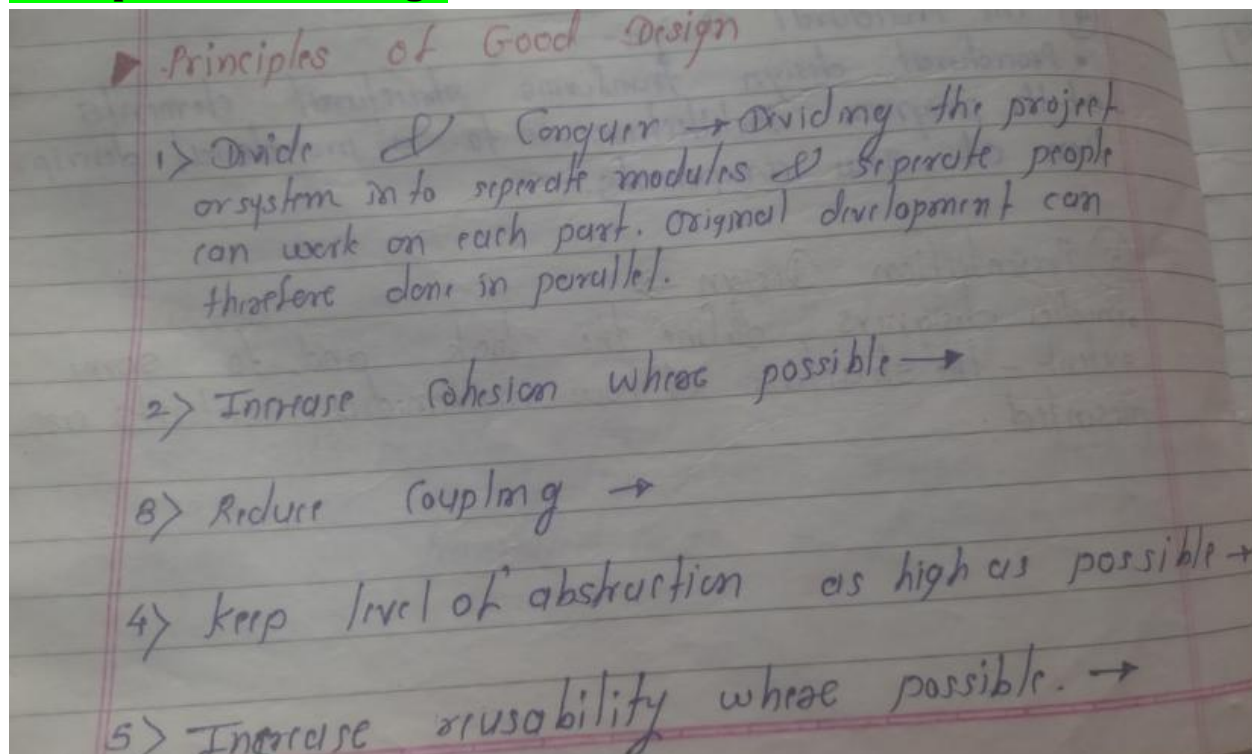 Principles of Good Design
1> Divide & Conquer → Dividing the project
or system in to seperate modules & seperate people
can work on each part. Original development can
therefore done in parallel.
2> Increase Cohesion where possible →
3> Reduce Coupling →
4> Keep level of abstraction as high as possible →
5> Increase reusability where possible. →